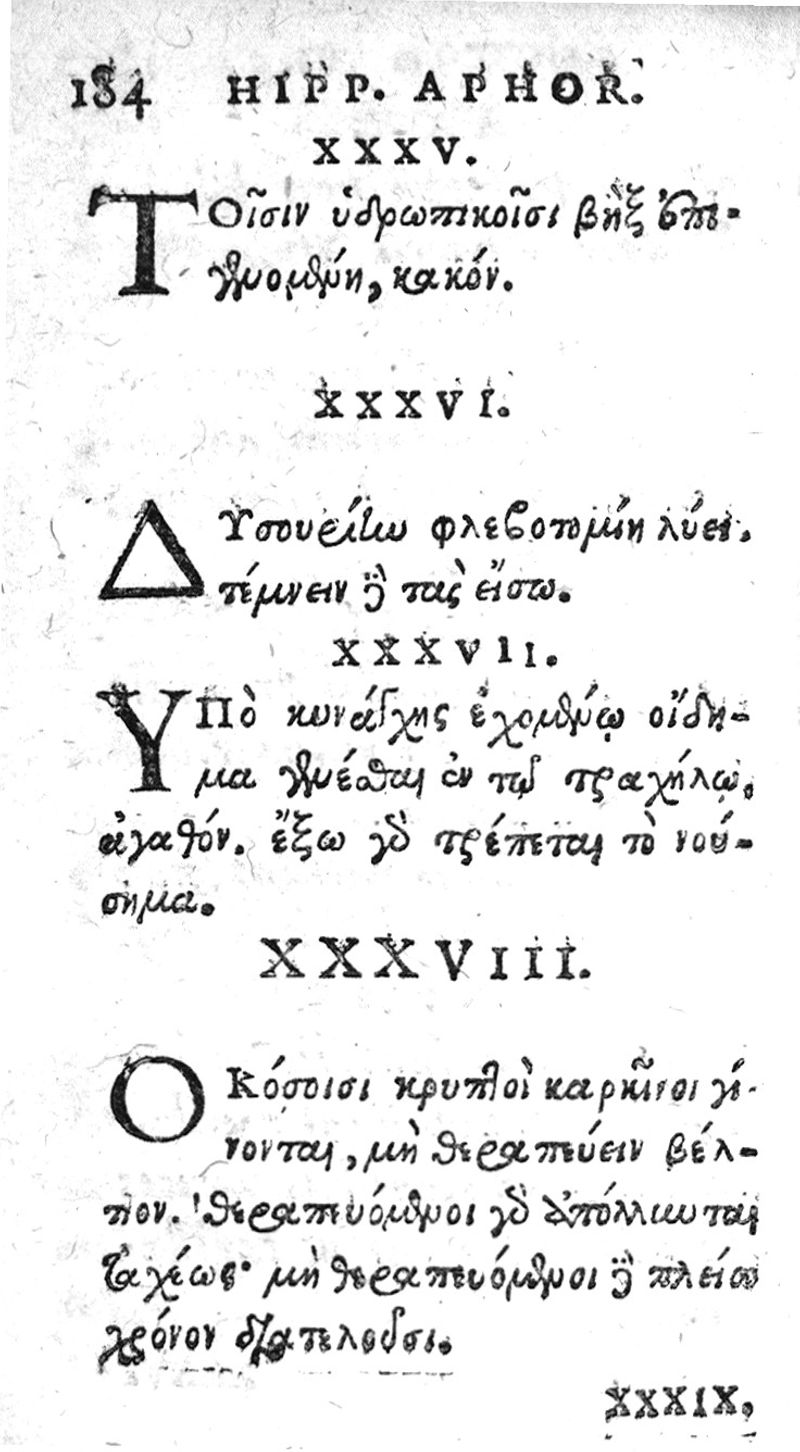 184 HIPP. APHOR.
XXXV.
ΤΟῖσιν ὑδρωπικοῖσι βὴξ ἐπι-
γενομένη, κακόν.
XXXVI.
ΔΥσουρίην φλεβοτομίη λύει.
τέμνειν δὲ τὰς εἴσω.
XXXVII.
ΥΠὸ κυνάγχης ἐχομένῳ οἴδη-
μα γενέσθαι ἐν τῷ τραχήλῳ,
ἀγαθόν. ἔξω γὰρ τρέπεται τὸ νού-
σημα.
XXXVIII.
ΟΚόσοισι κρυπτοὶ καρκῖνοι γί-
νονται, μὴ θεραπεύειν βέλ-
τιον. θεραπευόμενοι γὰρ ἀπόλλυνται
ταχέως· μὴ θεραπευόμενοι δὲ πλείω
χρόνον διατελοῦσι.
XXXIX.